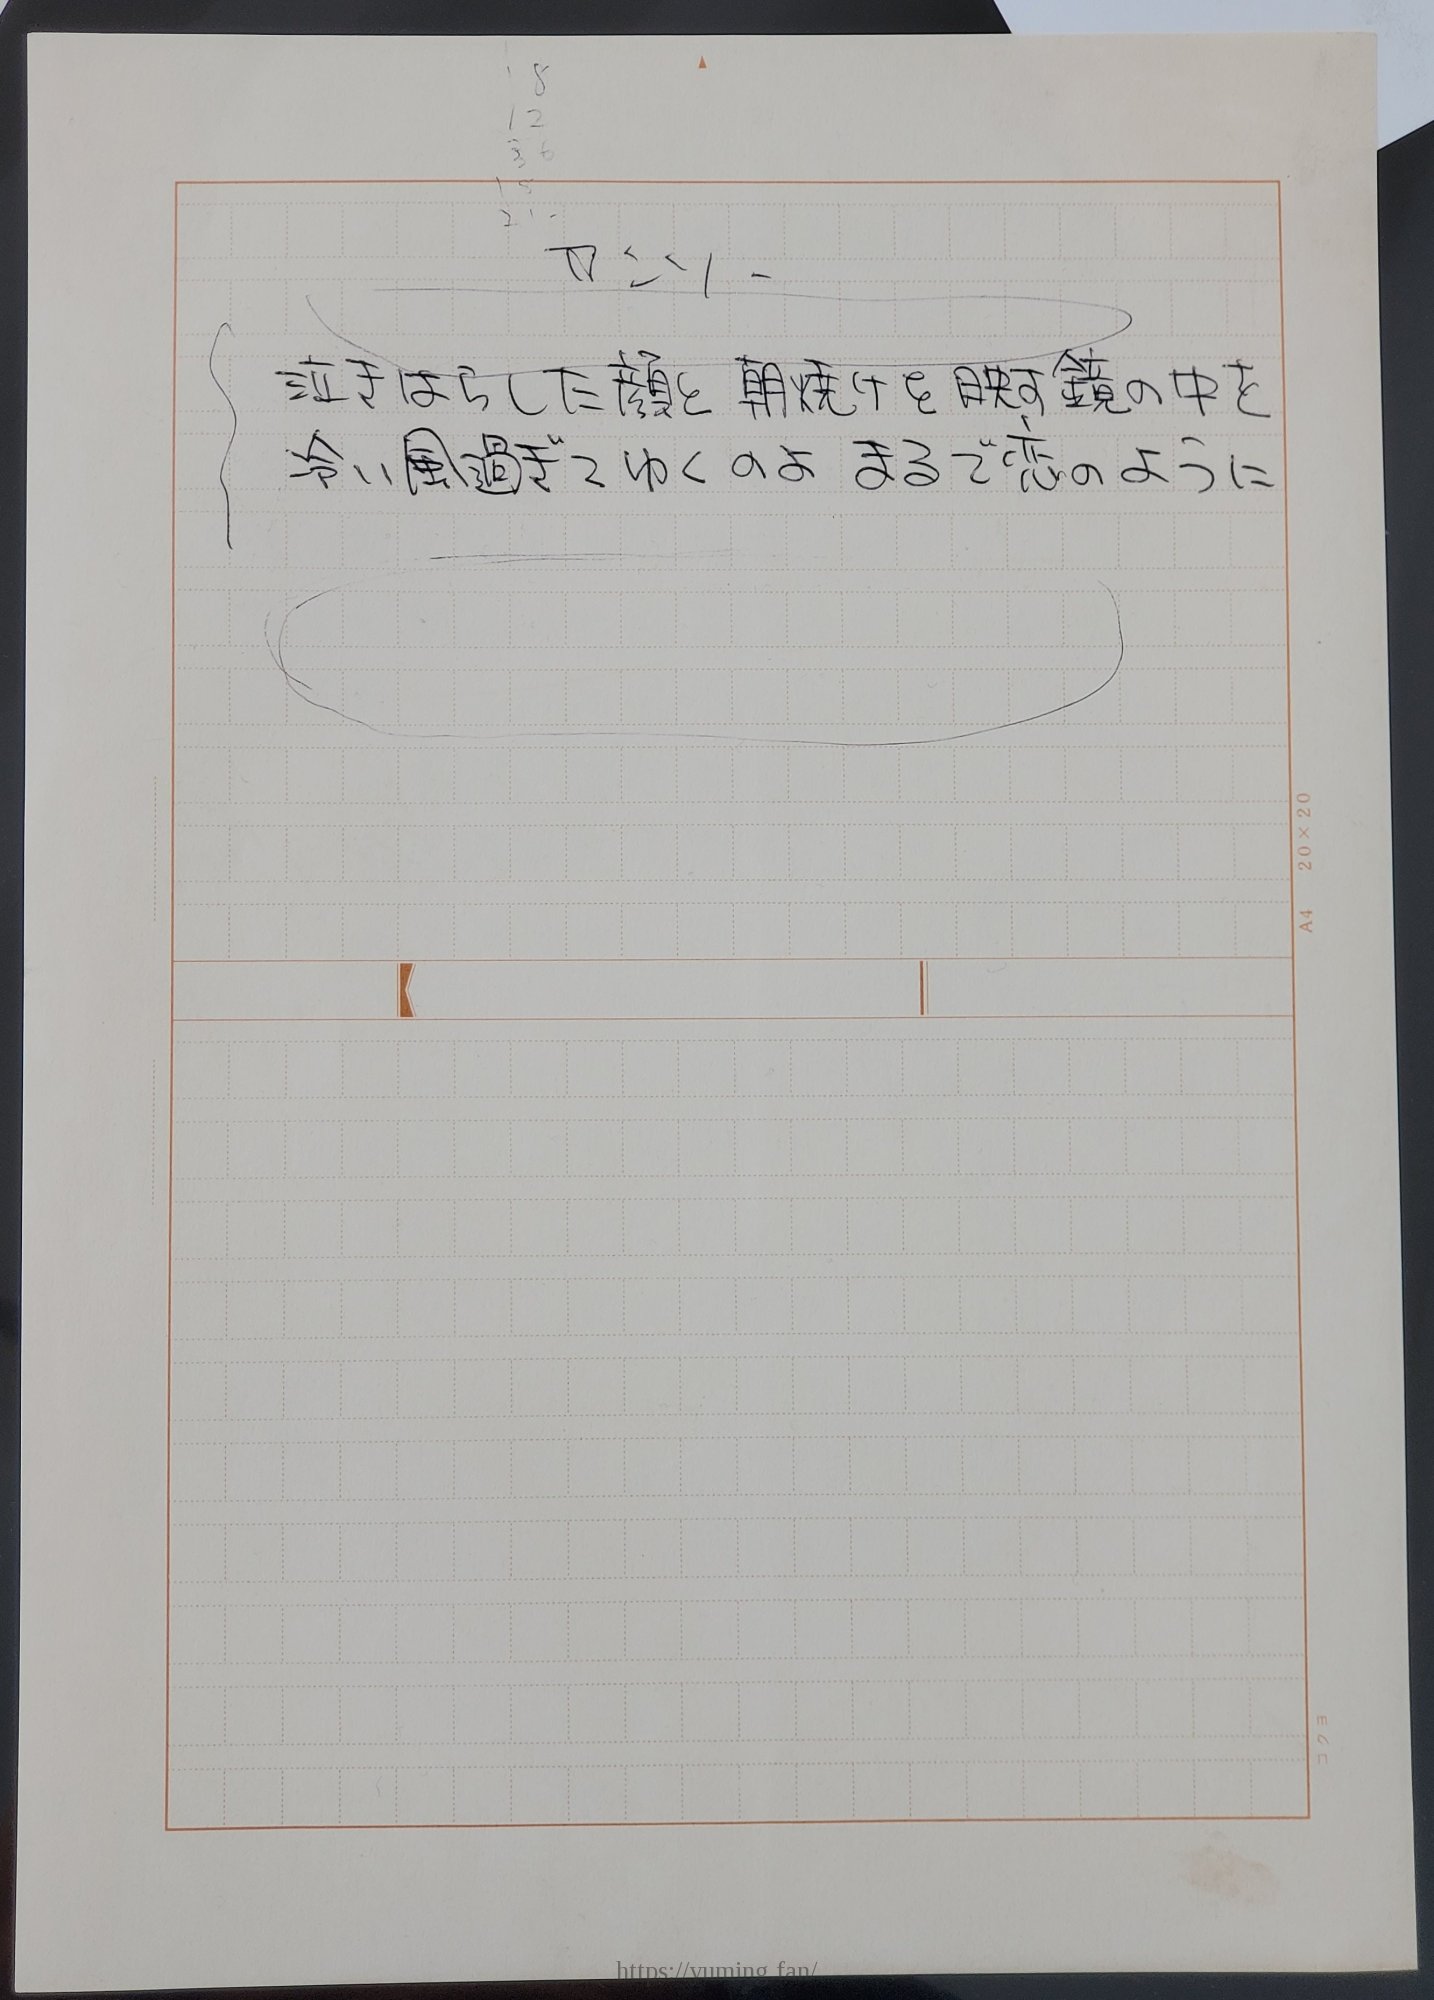 18
12
36
15
21-
泣きはらした顔と 朝焼けを映す鏡の中を
冷い風過ぎてゆくのよ まるで恋のように
A4 20×20
コクヨ
https://yuming.fan/